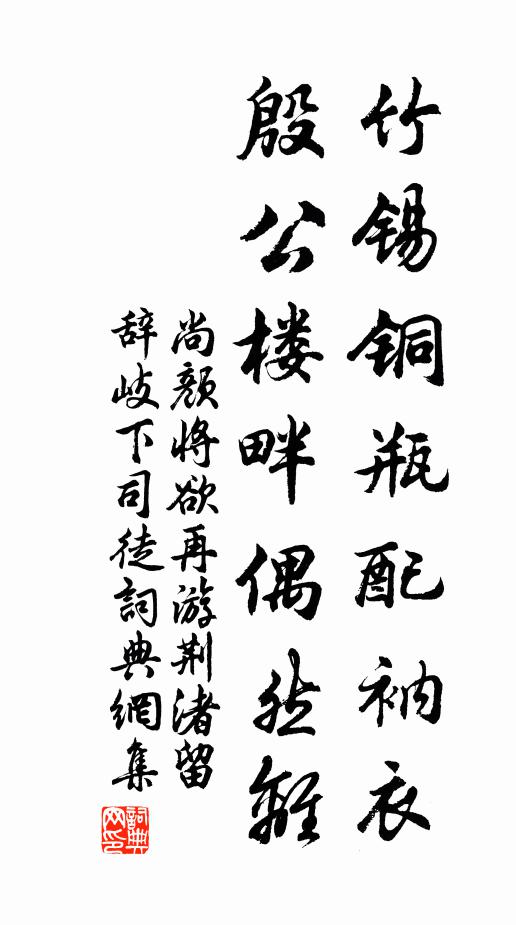 竹锡铜瓶配衲衣
殷公楼畔偶然離
尚颜将欲再游荆渚留
辞岐下司徒詞典網集
詞典网印